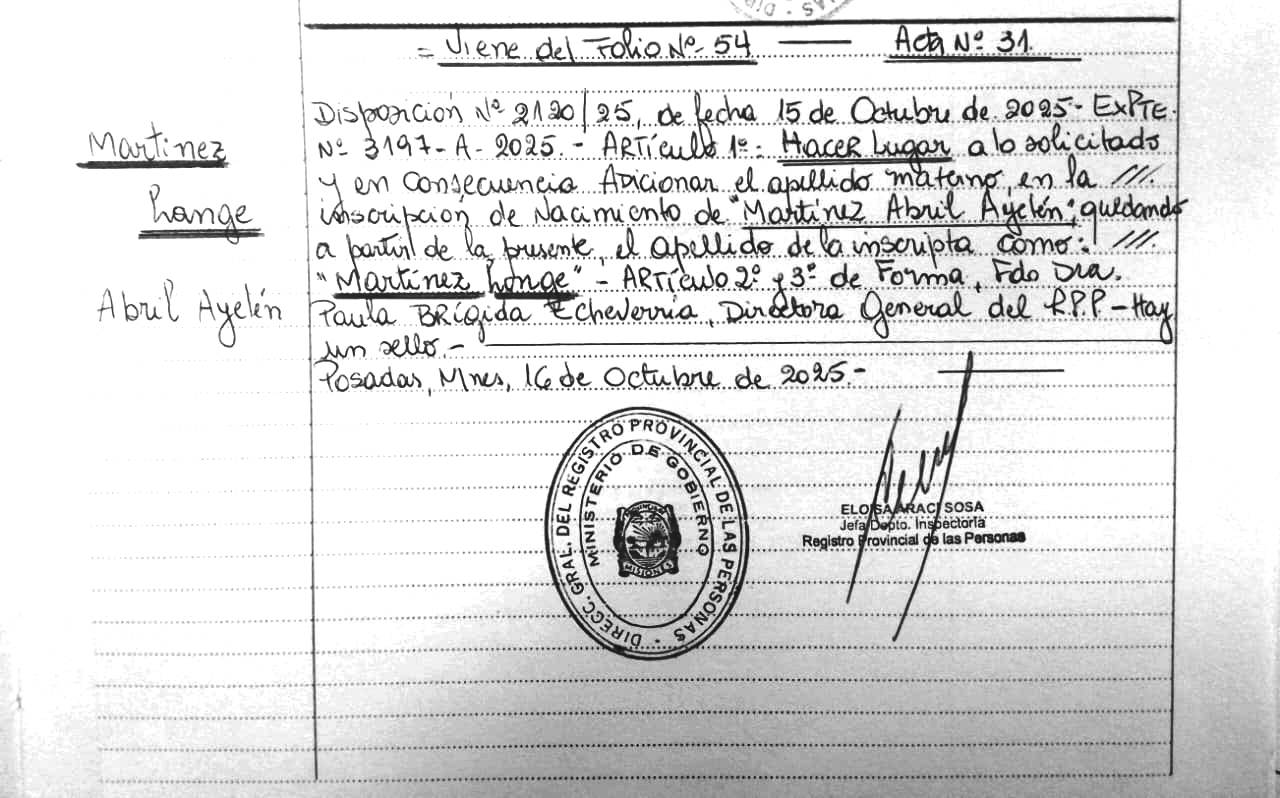 = Viene del Folio Nº 54 — Acta Nº 31.
Disposición Nº 2120/25, de fecha 15 de Octubre de 2025- EXPTE.
Nº 3197-A-2025.- ARTÍCULO 1º: HACER LUGAR a lo solicitado
y en consecuencia Adicionar el apellido materno, en la ///.
inscripción de Nacimiento de "Martínez Abril Ayelén", quedando
a partir de la presente, el apellido de la inscripta como: ///.
"Martínez Lange" - ARTÍCULO 2º y 3º de Forma, Fdo Dra.
Paula BRígida Echeverría, Directora General del R.P.P - Hay
un sello.-
Posadas, Mnes, 16 de Octubre de 2025.-
Martinez
Lange
Abril Ayelén
DIRECC. GRAL. DEL REGISTRO PROVINCIAL DE LAS PERSONAS -
MINISTERIO DE GOBIERNO
MISIONES
ELOISA ARACI SOSA
Jefa Depto. Inspectoría
Registro Provincial de las Personas